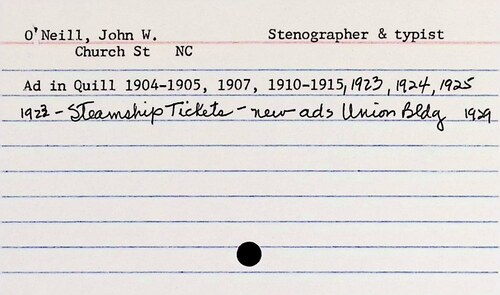 O'Neill, John W. Stenographer & typist
Church St NC
Ad in Quill 1904-1905, 1907, 1910-1915, 1923, 1924, 1925
1923 - Steamship Tickets - new ads Union Bldg 1929